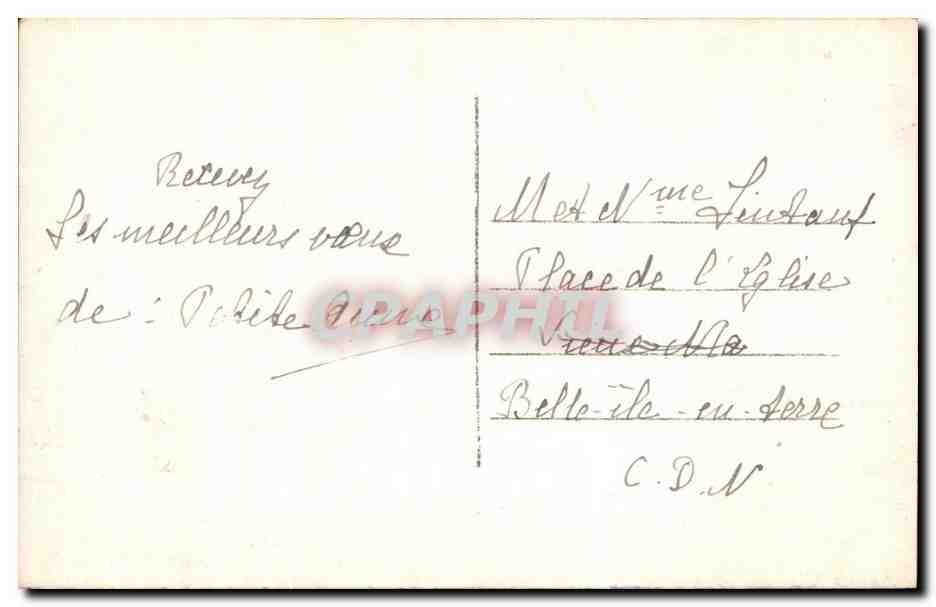 Recevez
Les meilleurs vœux
de : Petite
CPAPHIL
M et Mme
Place de l'Eglise
Belle-île-en-terre
C.D.N